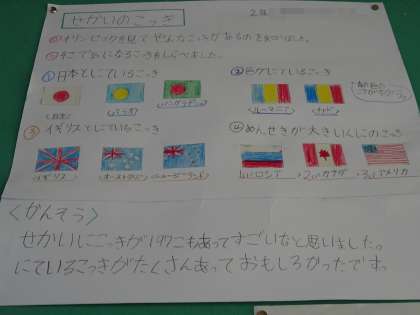 せかいのこっき
2年
オリンピックを見て
そこで気になるこっきをしらべました。
①日本とにているこっき
日本
パラオ
バングラデシュ
②色がにているこっき
ルーマニア
チャド
③イギリスとにているこっき
イギリス
オーストラリア
ニュージーランド
④めんせきが大きいくにのこっき
1いロシア
2いカナダ
3いアメリカ
〈かんそう〉
せかいにこっきが197こもあってすごいなと思いました。
にているこっきがたくさんあっておもしろかったです。